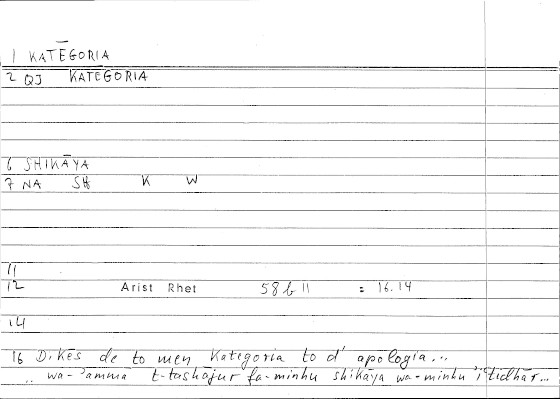 1 KATĒGORIA
2 QJ KATĒGORIA
6 SHIKĀYA
7 NA SH K W
11
12 Arist Rhet 58b11 = 16.14
14
16 Dikēs de to men Katēgoria to d' apologia...
.. wa-'ammā t-tashājur fa-minhu shikāya wa-minhu 'i'tidhār...